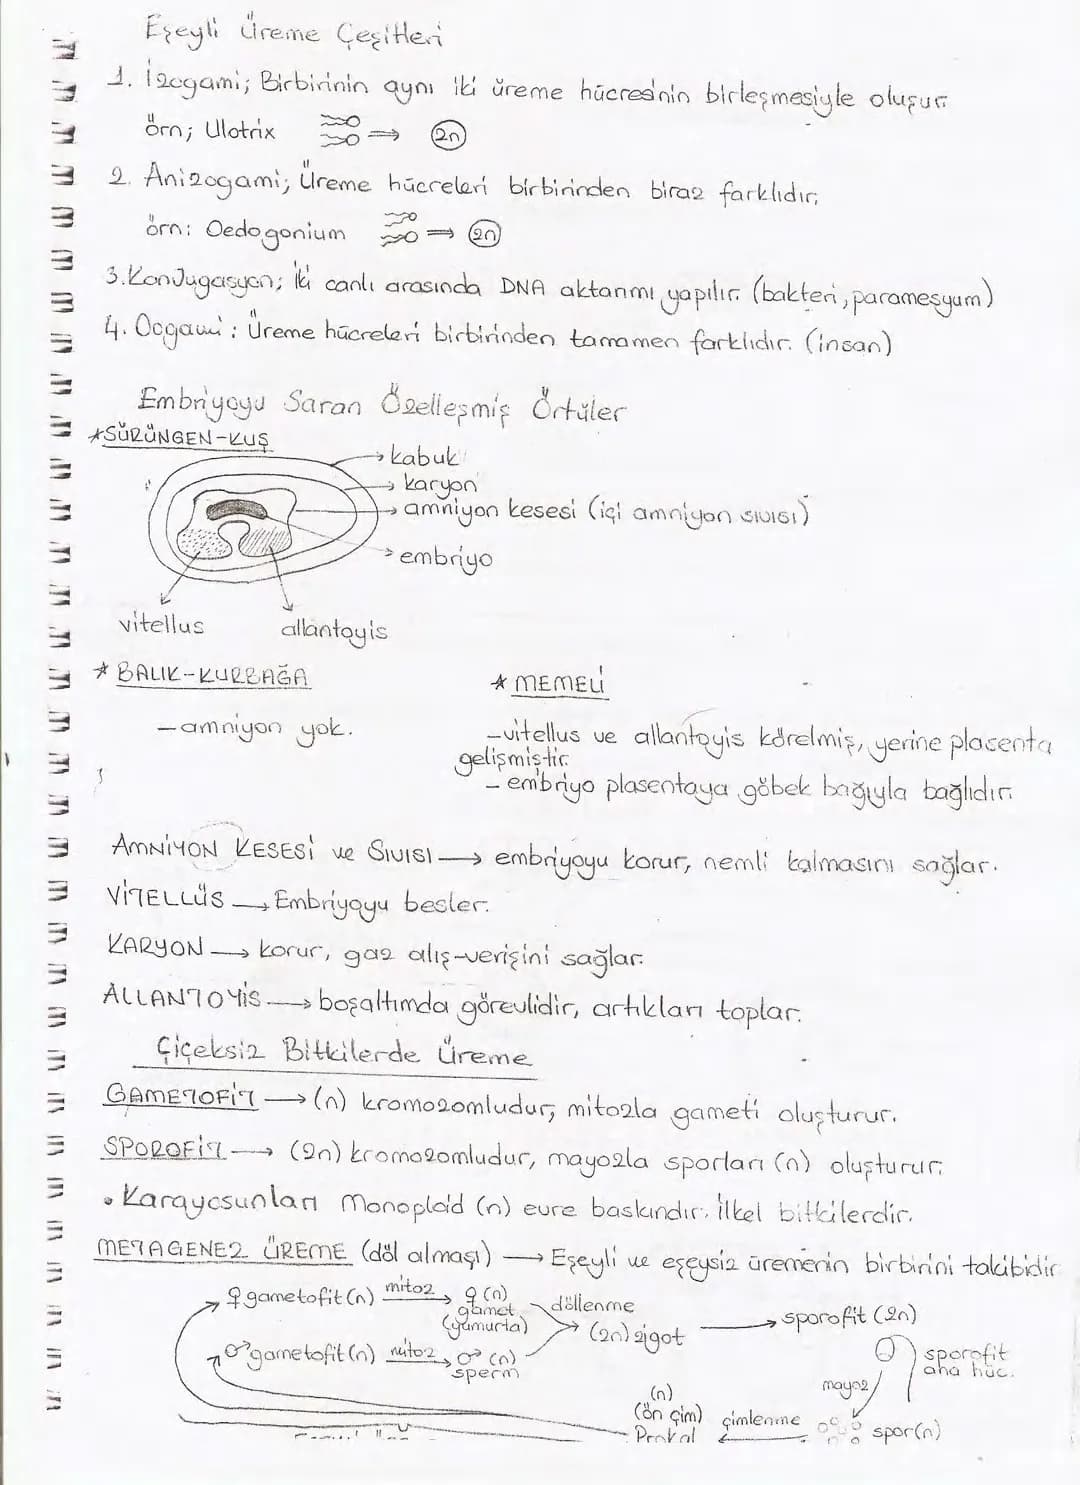 Eşeyli Üreme Çeşitleri
1. İzogami; Birbirinin aynı iki üreme hücresinin birleşmesiyle oluşur.
örn; Ulotrix 2n
2. Anizogami; Üreme hücreleri birbirinden biraz farklıdır;
örn: Oedogonium 2n
3. Konjugasyon; İki canlı arasında DNA aktarımı yapılır. (bakteri, paramesyum)
4. Oogami: Üreme hücreleri birbirinden tamamen farklıdır. (insan)
Embriyoyu Saran Özelleşmiş Örtüler
*SÜRÜNGEN-KUŞ
kabuk
karyon
amniyon kesesi (içi amniyon sıvısı)
embriyo
vitellus allantoyis
* BALIK-KURBAĞA
-amniyon yok.
* MEMELİ
-vitellus ve allantoyis körelmiş, yerine plasenta
gelişmiştir.
- embriyo plasentaya göbek bağıyla bağlıdır.
AMNİYON KESESİ ve SIVISI → embriyoyu korur, nemli kalmasını sağlar.
VİTELLÜS → Embriyoyu besler.
KARYON → korur, gaz alış-verişini sağlar.
ALLANTOYİS → boşaltımda görevlidir, artıkları toplar.
Çiçeksiz Bitkilerde Üreme
GAMETOFİT → (n) kromozomludur, mitozla gameti oluşturur.
SPOROFİT → (2n) kromozomludur, mayozla sporları (n) oluşturur.
• Karayosunları Monoploid (n) evre baskındır. İlkel bitkilerdir.
METAGENEZ ÜREME (döl almaşı) → Eşeyli ve eşeysiz üremenin birbirini takibidir
♀gametofit (n) mitoz ♀ (n)
gamet
(yumurta)
döllenme
(2n) zigot → sporofit (2n)
♂gametofit (n) mitoz ♂ (n)
sperm
sporofit
ana hüc.
mayoz
spor(n)
çimlenme
(n)
(ön çim)